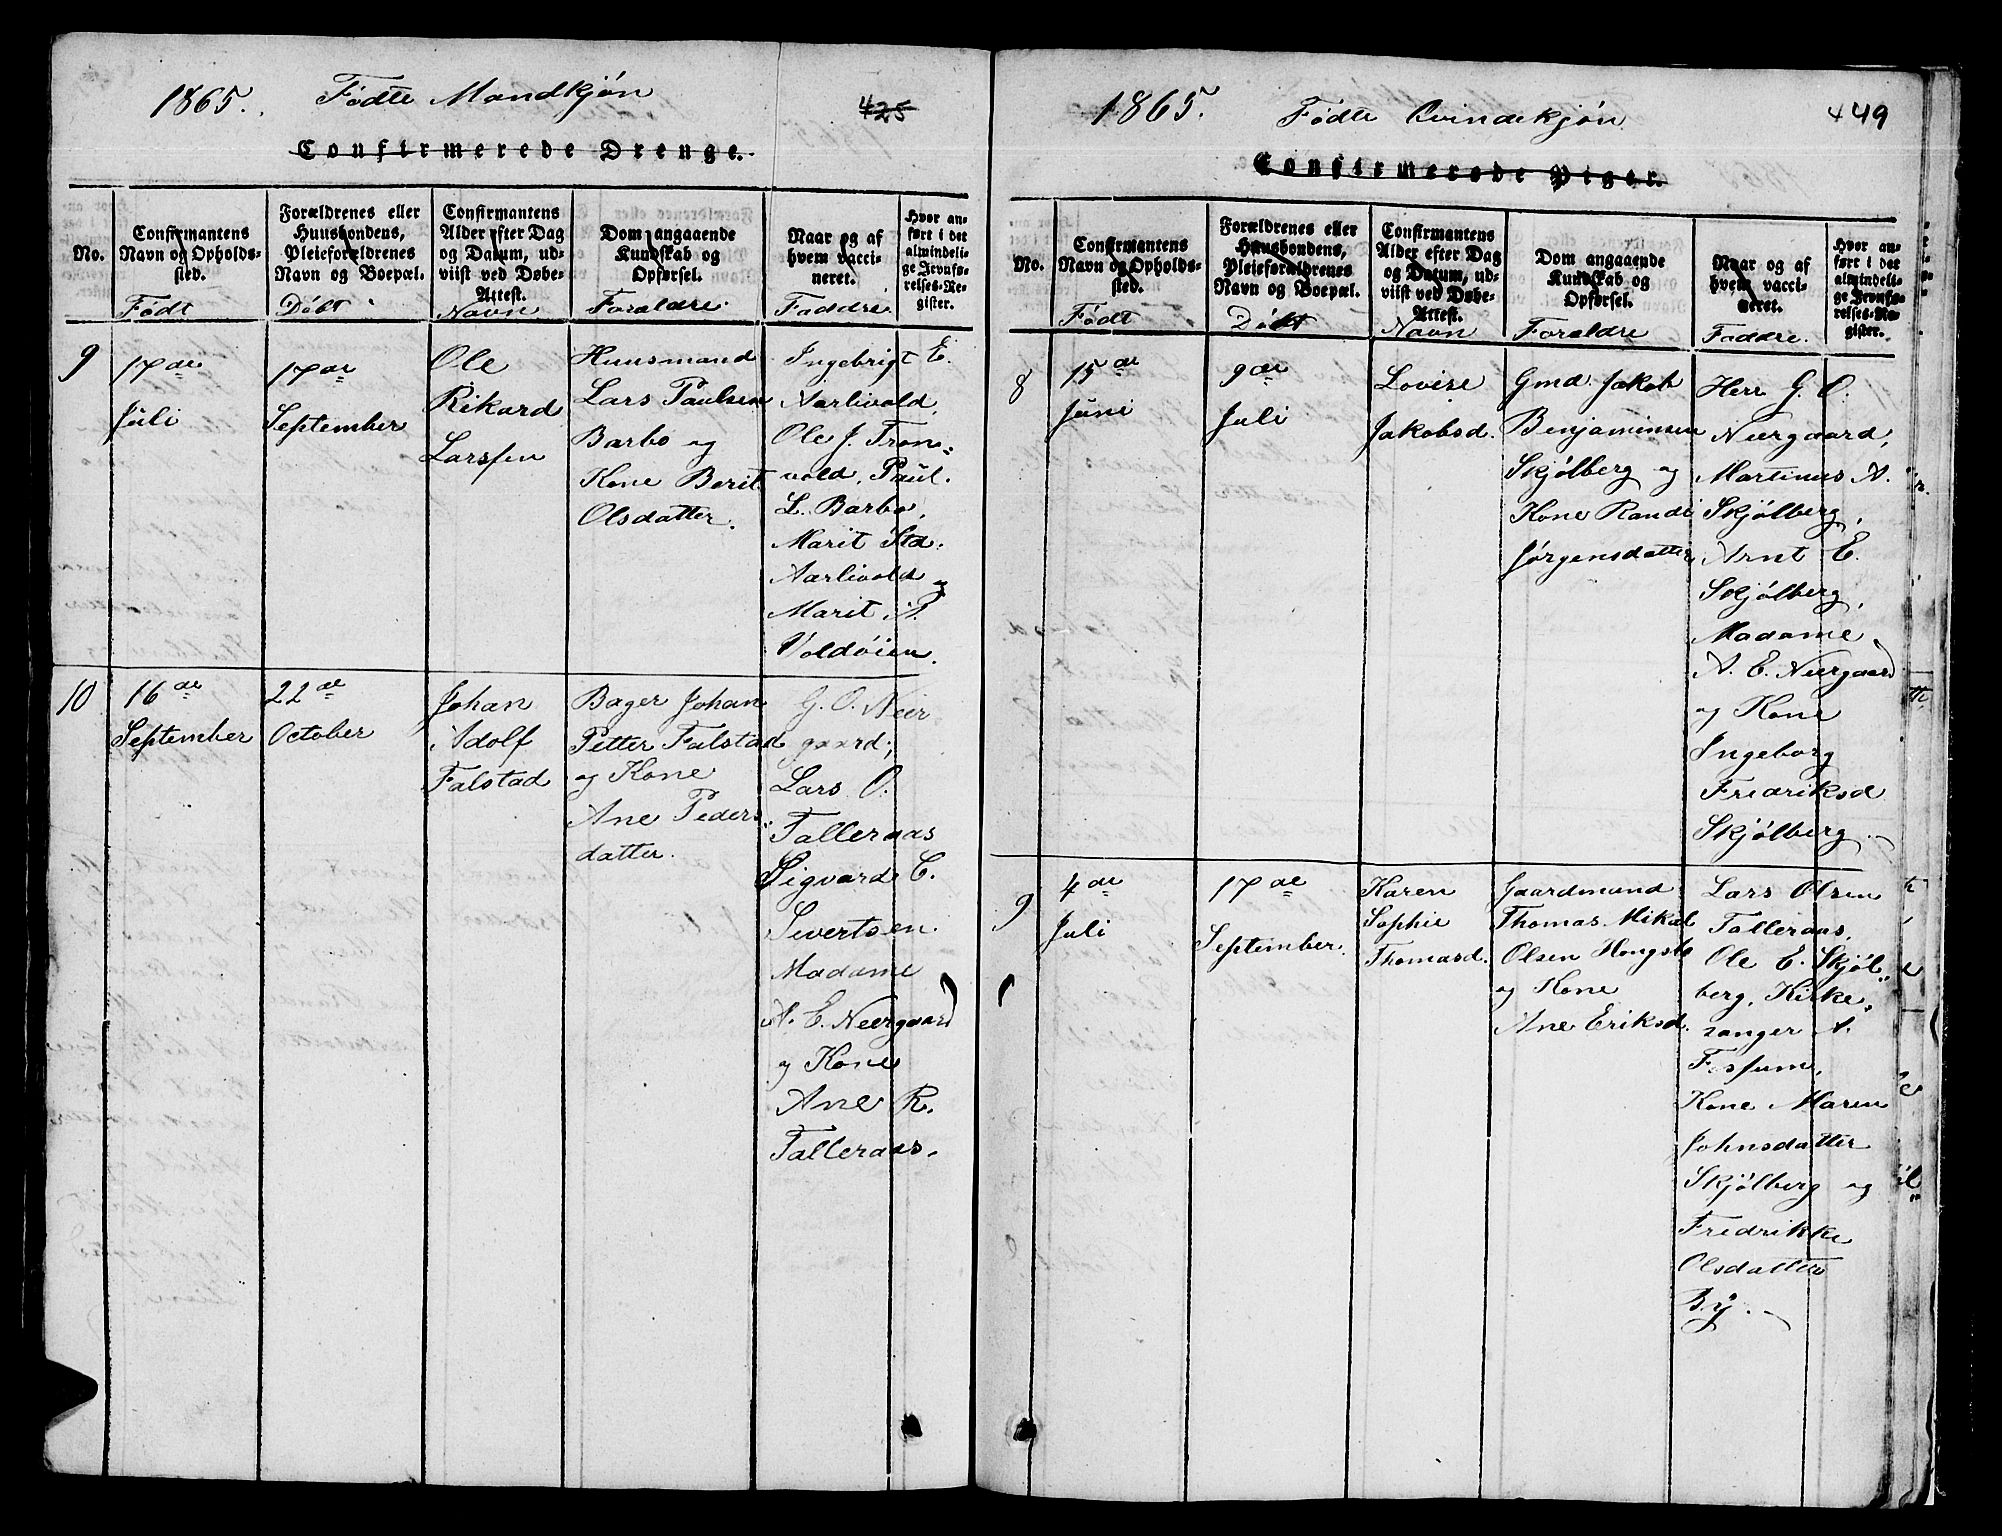 1865. Fødte Mandkjøn 425
Confirmerede Drenge.
No.
Confirmantens
Navn og Opholds-
sted.
Født
Forældrenes eller
Huusbondens,
Pleieforældrenes
Navn og Boepæl.
Döbt
Confirmantens
Alder efter Dag
og Datum, ud-
viist ved Døbe-
Attest.
Navn
Dom angaaende
Kundskab og
Opførsel.
Forældre.
Naar og af
hvem vacci-
neret.
Faddre.
Hvor an-
ført i det
almindeli-
ge Jevnfø-
relses-Re-
gister.
9
17de
Juli
17de
September
Ole
Rikard
Larssen
Huusmand
Lars Paulsen
Barbo og
Kone Berit
Olsdatter.
Ingebrigt E.
Aarlivold,
Ole J. Tron-
vold, Paul.
L. Barbo,
Marit Std.
Aarlivold og
Marit A.
Voldøien.
10
16de
September
22de
October
Johan
Adolf
Falstad
Bager Johan
Petter Falstad
og Kone
Ane Peders-
datter.
G. O. Neer
gaard,
Lars O.
Talleraas
Sigvard C.
Sivertsen.
Madame
A. E. Neergaard
og Kone
Ane R.
Talleraas.
1865. Fødte Qvindekjøn 449
Confirmerede Piger.
No.
Confirmantens
Navn og Opholds-
sted.
Født
Forældrenes eller
Huusbondens,
Pleieforældrenes
Navn og Boepæl.
Döbt
Confirmantens
Alder efter Dag
og Datum, ud-
viist ved Døbe-
Attest.
Navn
Dom angaaende
Kundskab og
Opførsel.
Forældre
Naar og af
hvem vacci-
neret.
Faddre.
Hvor an-
ført i det
almindeli-
ge Jevnfø-
relses-Re-
gister.
8
15de
Juni
9de
Juli
Lovise
Jakobsd.
Gmd. Jakob
Benjaminsen
Skjølberg og
Kone Randi
Jørgensdatter
Herr G. O.
Neergaard,
Martinus A.
Skjølberg,
Arnt E.
Skjølberg,
Madame
A. E. Neergaard
og Kone
Ingeborg
Fredriksd
Skjølberg.
9
4de
Juli
17de
September.
Karen
Sophie
Thomasd.
Gaardmand
Thomas Mikal
Olsen Hongslo
og Kone
Ane Eriksd.
Lars Olsen
Talleraas,
Ole E. Skjøl-
berg, Kirke-
sanger A.
Fossum,
Kone Maren
Johnsdatter
Skjølberg og
Fredrikke
Olsdatter
By.